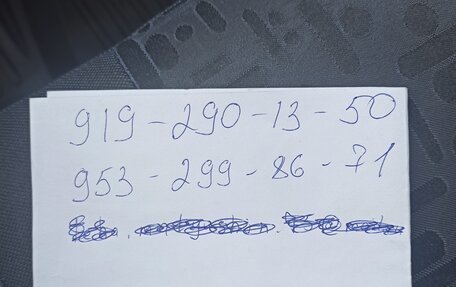 919-290-13-50
953-299-86-71